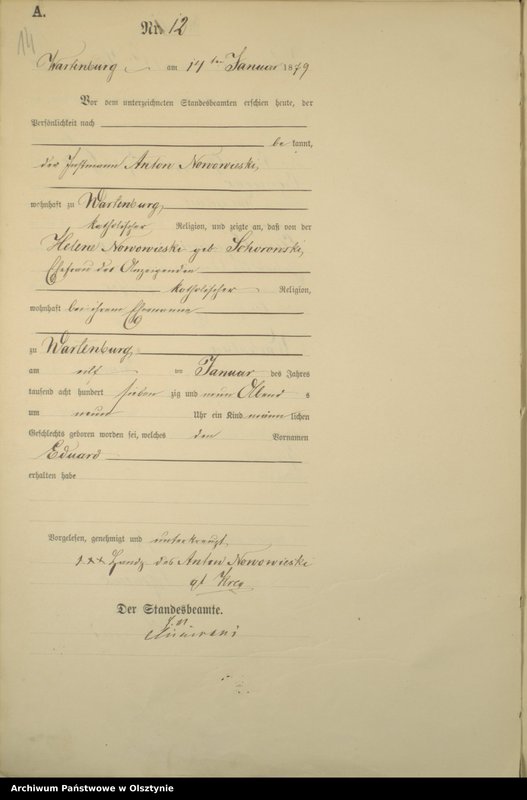 A.
14
Nr. 12
Wartenburg am 14 ten Januar 1879
Vor dem unterzeichneten Standesbeamten erschien heute, der
Persönlichkeit nach
be kannt,
der Instmann Anton Nowowieski,
wohnhaft zu Wartenburg,
katholischer Religion, und zeigte an, daß von der
Helene Nowowieski geb
Ehefrau des Anzeigenden
katholischer Religion,
wohnhaft bei ihrem Ehemanne
zu Wartenburg,
am elf ten Januar des Jahres
tausend acht hundert sieben zig und neun Abend s
um neun Uhr ein Kind männ lichen
Geschlechts geboren worden sei, welches den Vornamen
Eduard
erhalten habe
Vorgelesen, genehmigt und unterkreuzt
+++ Handz des Anton Nowowieski
Der Standesbeamte.
Archiwum Państwowe w Olsztynie